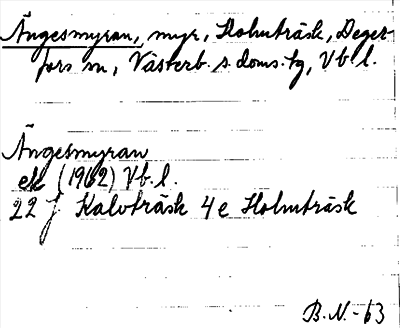 Ängesmyran, myr, Holmträsk, Deger-
fors sn, Västerb. s. doms. tg, Vb. l.
Ängesmyran
ek (1962) Vb. l.
22 J Kalvträsk 4 e Holmträsk
B.N.-63